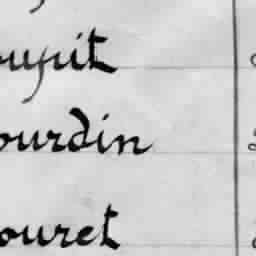 oupit
ourdin
ouret